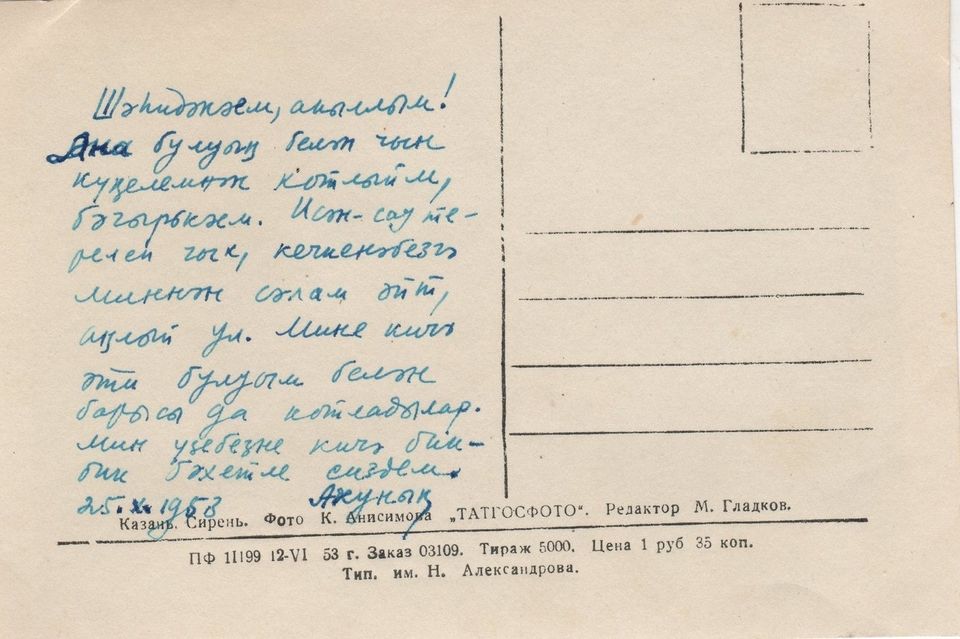 Шәһидәкәем, акыллым!
Ана булуың белән чын
күңелемнән котлыйм,
бәгырькәем. Исән-сау те-
релеп чык, кечкенәбезгә
миннән сәлам әйт,
аңлый ул. Мине кичә
әти булуым белән
барысы да котладылар.
Мин үзебезне кичә бик-
бик бәхетле сиздем.
25.X.1953 Ахуның
Казань. Сирень. Фото К. Анисимова „ТАТГОСФОТО“. Редактор М. Гладков.
ПФ 11199 12-VI 53 г. Заказ 03109. Тираж 5000. Цена 1 руб 35 коп.
Тип. им. Н. Александрова.